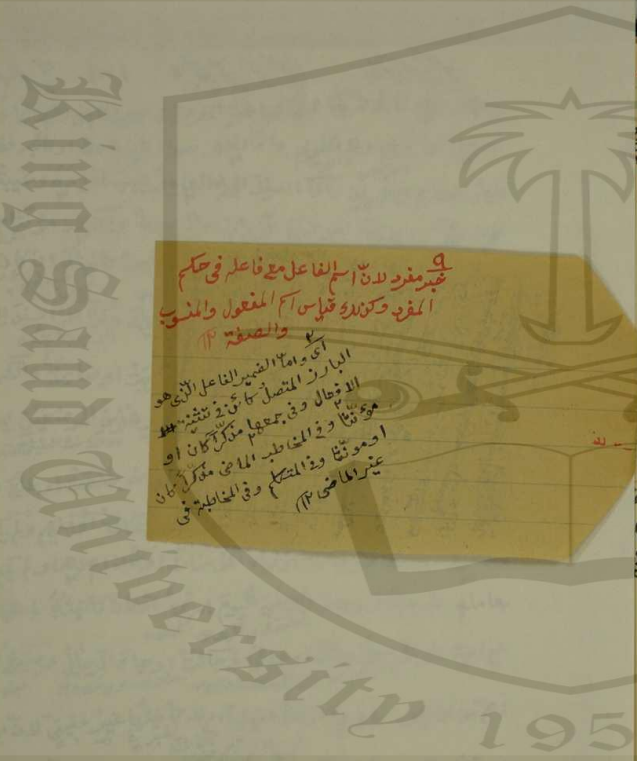 ٩
خبر مفرد لانّ اسم الفاعل مع فاعله في حكم
المفرد وكذلك قياس اسم المفعول والمنسوب
والصفة ١٢
٢
أى وامّا الضمير الفاعل الّذى هو
البارز المتصل كائن في تثنية
الافعال وفي جمعها مذكّرا كان او
مؤنّثا وفي المخاطب الماضى مذكّرا كان
او مونّثا وفي المتكلم وفي المخاطبة فى
غير الماضى ١٢
King Saud University 195